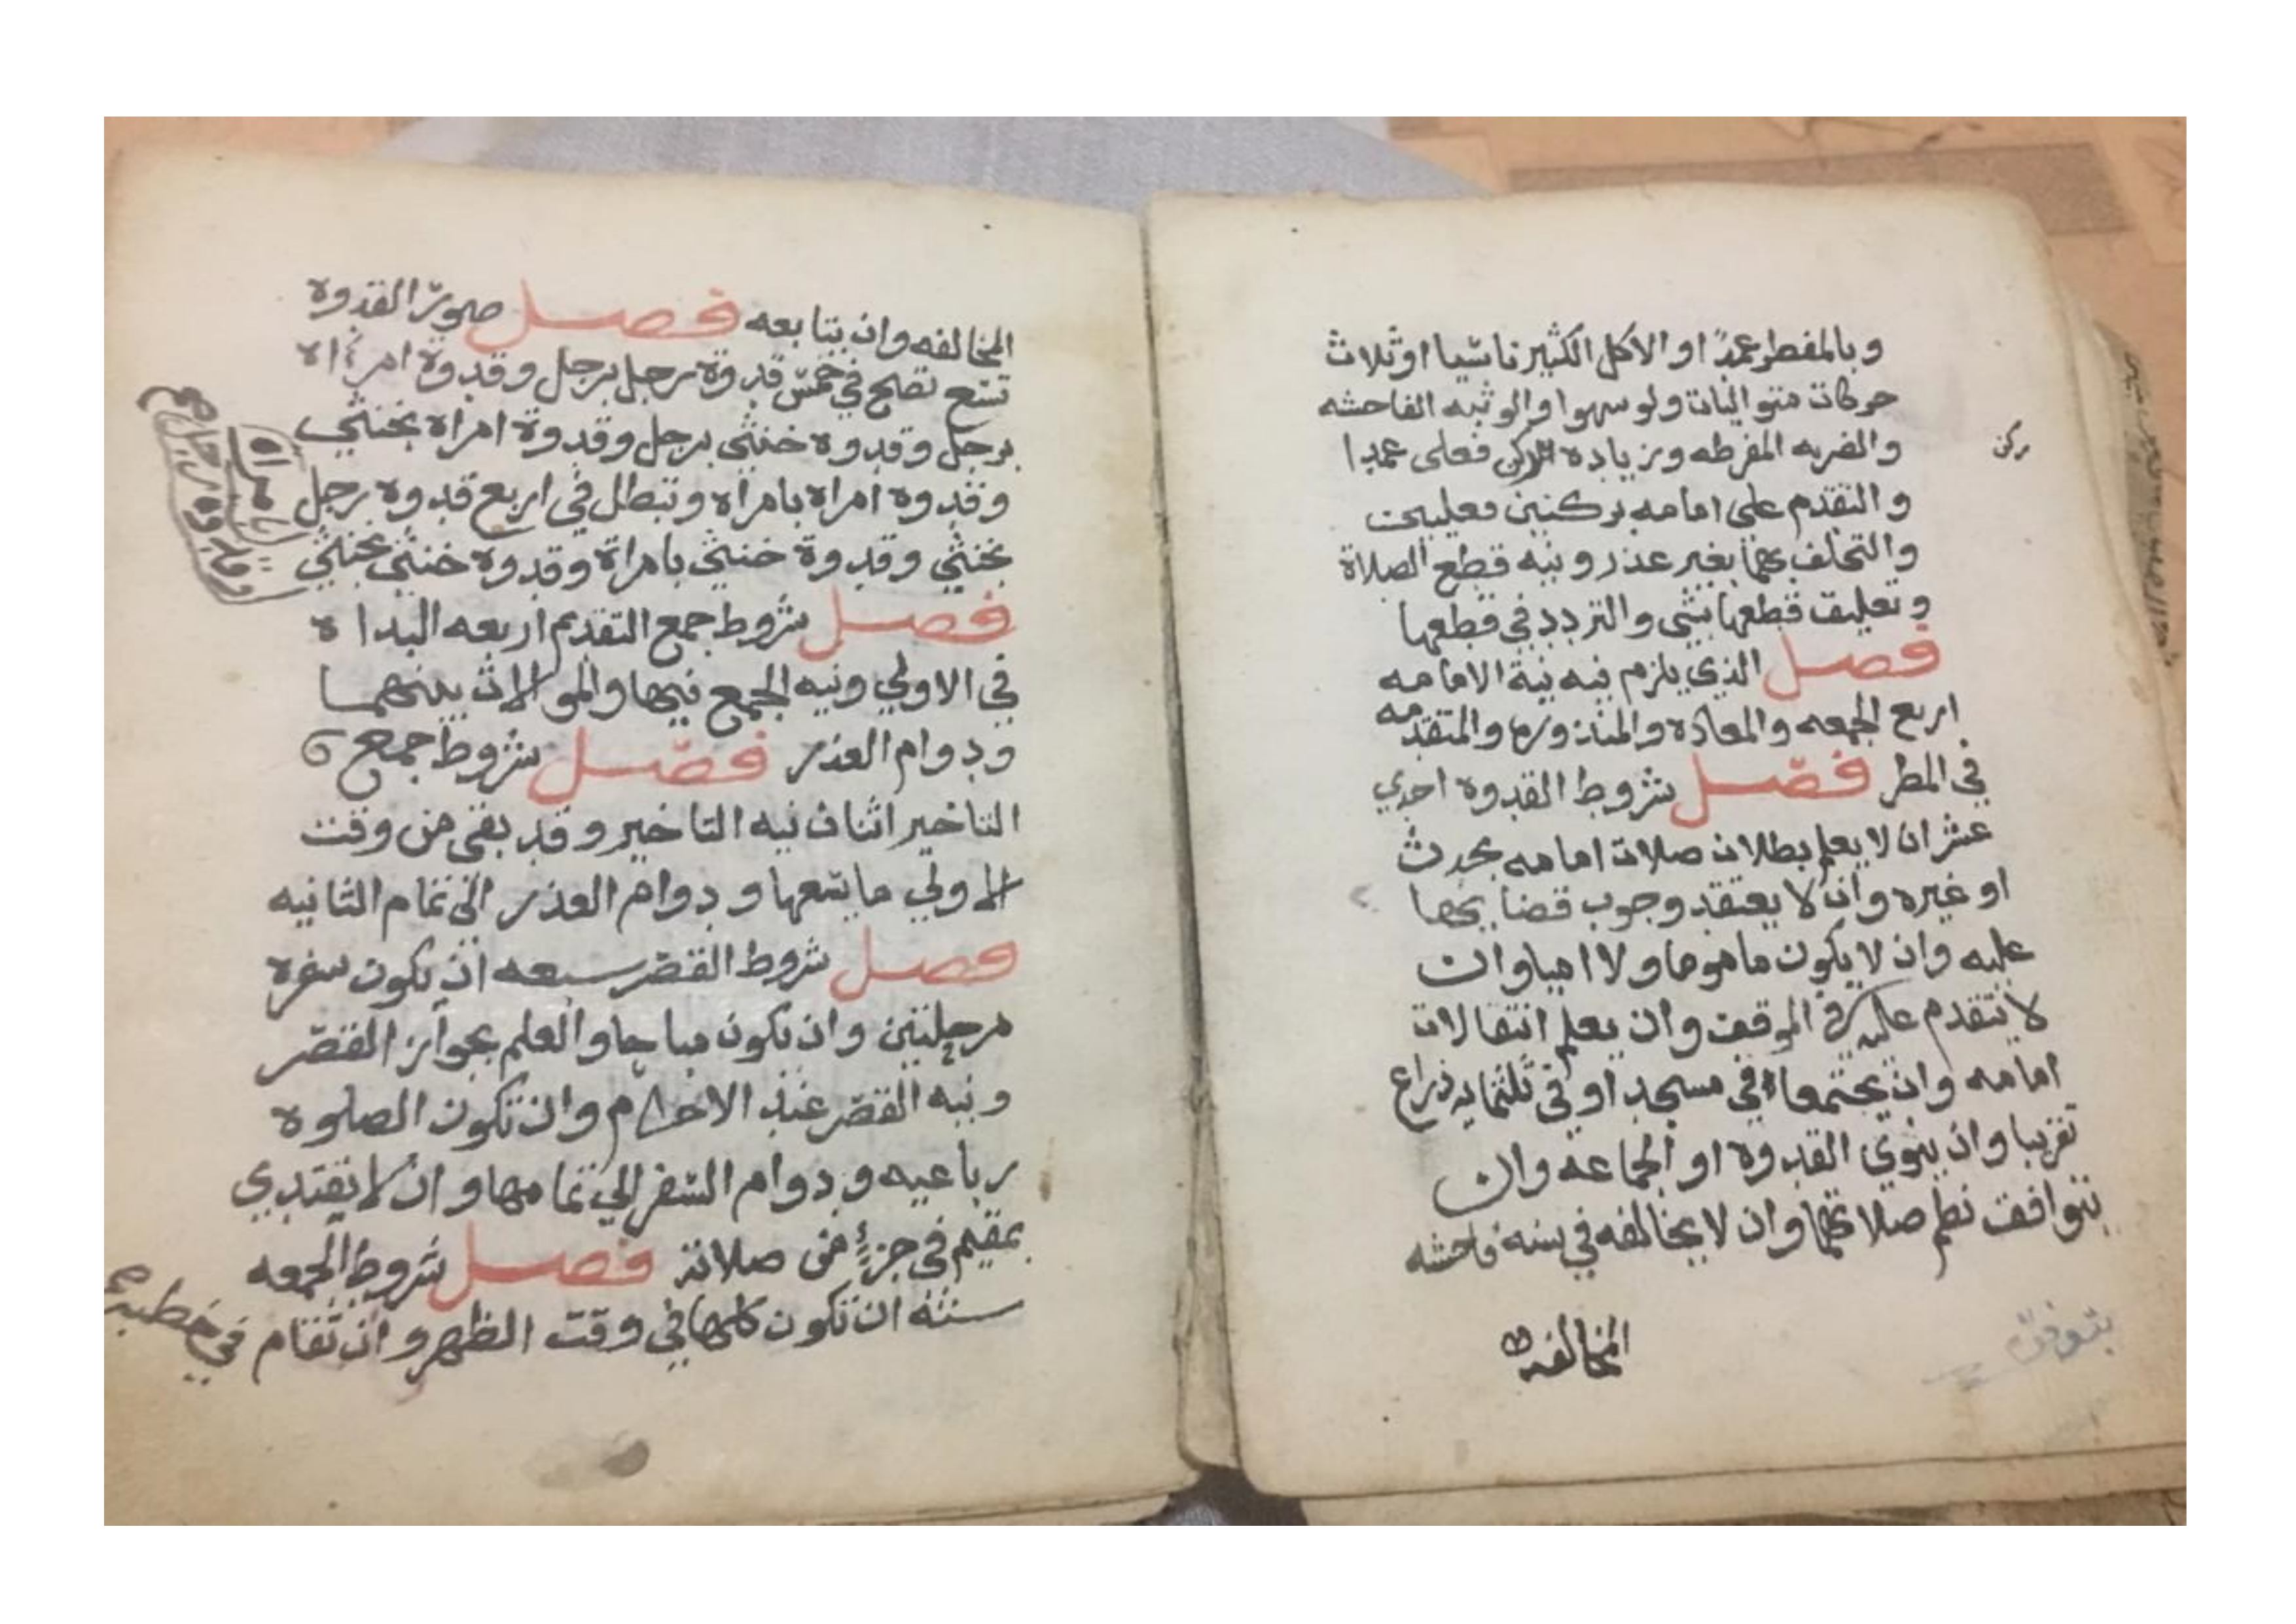 وبالمفطر عمدًا او الاكل الكثير ناسيا او ثلاث
حركات متواليات ولو سهوا والوثبه الفاحشه
والضربه المفرطه وزياده ركن فعلى عمدا
ركن
والتقدم على امامه بركنين فعليين
والتخلف بهما بغير عذر ونيه قطع الصلاة
وتعليق قطعها بشي والتردد في قطعها
فصل الذي يلزم فيه نية الامامه
اربع الجمعه والمعاده والمنذوره والمتقدمه
في المطر فصل شروط القدوه احدي
عشر ان لا يعلم بطلان صلات امامه بحدث
او غيره وان لا يعتقد وجوب قضايها
عليه وان لا يكون ماموما ولا اميا وان
لا يتقدم عليه في الموقف وان يعلم انتقالات
امامه وان يجتمعا في مسجد او في ثلثمايه ذراع
تقريبا وان ينوي القدوة او الجماعه وان
يتوافق نظم صلاتهما وان لا يخالفه في سنه فاحشه
المخالفه
المخالفه وان يتابعه فصل صور القدوه
تسع تصح في خمس قدوة رجل برجل وقدوة امراه
برجل وقدوه خنثى برجل وقدوة امراه بخنثي
وقدوه امراه بامراه وتبطل في اربع قدوه رجل
بامراه
وقدوه رجل
بخنثي وقدوة خنثي بامراة وقدوه خنثي بخنثي
فصل شروط جمع التقديم اربعه البداه
في الاولي ونيه الجمع فيها والموالات بينهما
ودوام العذر فصل شروط جمع
التاخير اثنان نيه التاخير وقد بقي من وقت
الاولي ما يسعها ودوام العذر الى تمام الثانيه
فصل شروط القصر سبعه ان يكون سفره
مرحلتين وان يكون مباحا والعلم بجواز القصر
ونيه القصر عند الاحرام وان تكون الصلوه
رباعيه ودوام السفر الي تمامها وان لا يقتدي
بمقيم في جزء من صلاته فصل شروط الجمعه
سته ان تكون كلها في وقت الظهر وان تقام في خطبه